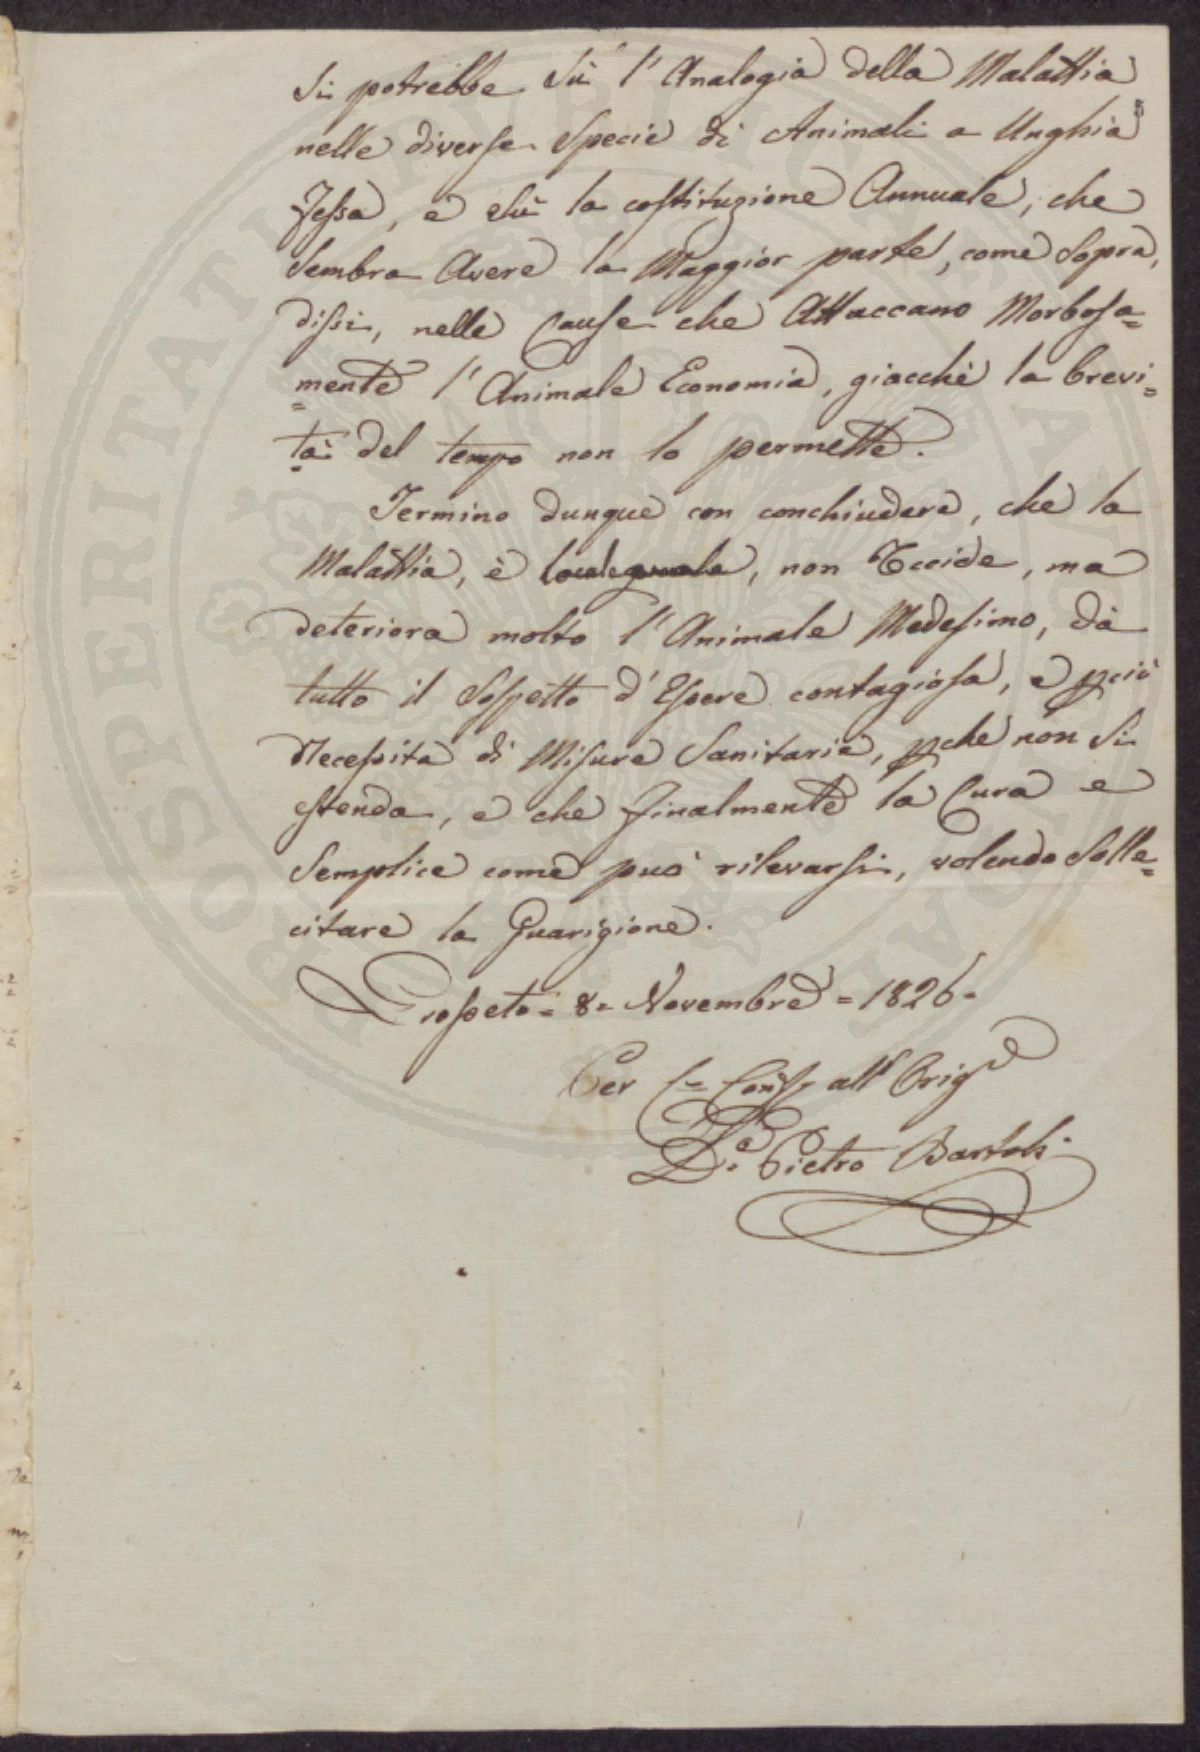 si potrebbe sù l'Analogia della Malattia
nelle diverse Specie di Animali a Unghia
fessa, e sù la costituzione Annuale, che
sembra Avere la Maggior parte, come Sopra
dissi, nelle Cause che Attaccano Morbosa=
=mente l'Animale Economia, giacchè la brevi=
=tà del tempo non lo permette.
Termino dunque con conchiudere, che la
Malattia, è, non Uccide, ma
deteriora molto l'Animale Medesimo, dà
tutto il Sospetto d'Essere contagiosa, e pciò
Necessita di Misure Sanitarie, pche non si
estenda, e che finalmente la Cura e
Semplice come può rilevarsi, volendo Solle=
citare la Guarigione.
Grosseto = 8 = Novembre = 1826 =
Per all' Orig
D. Pietro Bartoli
PROSPERITATI PUBLICAE AUGENDAE